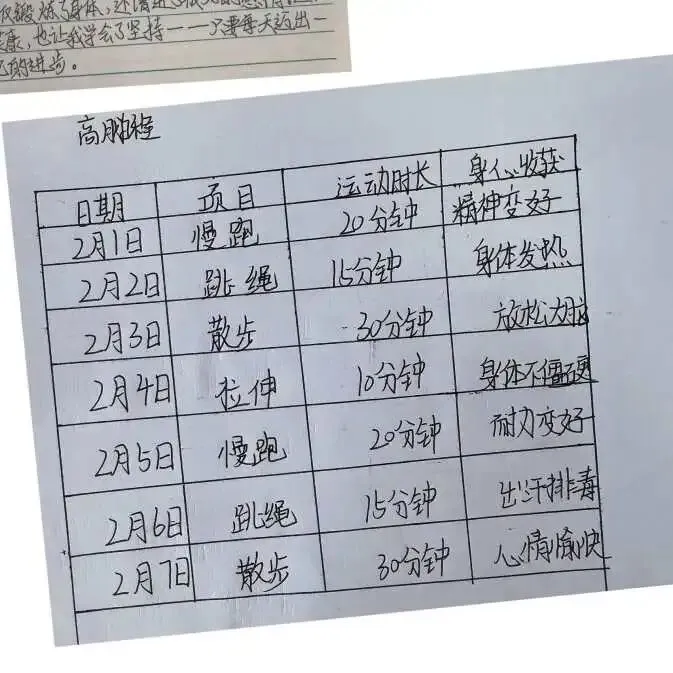 锻炼了身体,还
康,也让我学会了坚持一一只要每天迈出一
的进步。
高鹏程
日期 项目 运动时长 身心收获
2月1日 慢跑 20分钟 精神变好
2月2日 跳绳 15分钟 身体发热
2月3日 散步 30分钟 放松大脑
2月4日 拉伸 10分钟 身体不僵硬
2月5日 慢跑 20分钟 耐力变好
2月6日 跳绳 15分钟 出汗排毒
2月7日 散步 30分钟 心情愉快